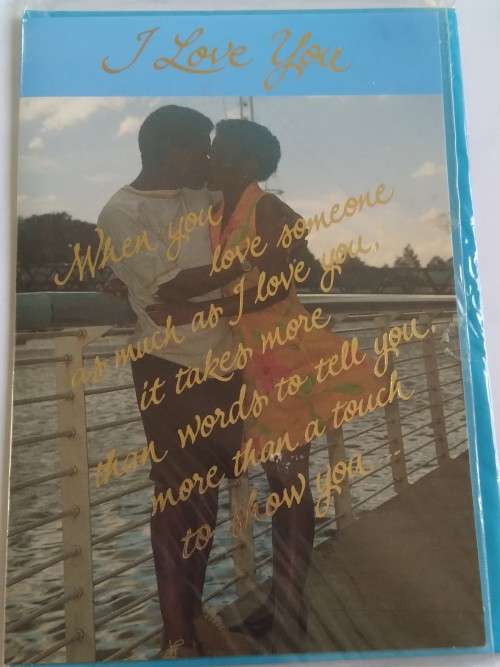 I Love You
When you
love someone
as much as I love you,
it takes more
than words to tell you,
more than a touch
to show you ...